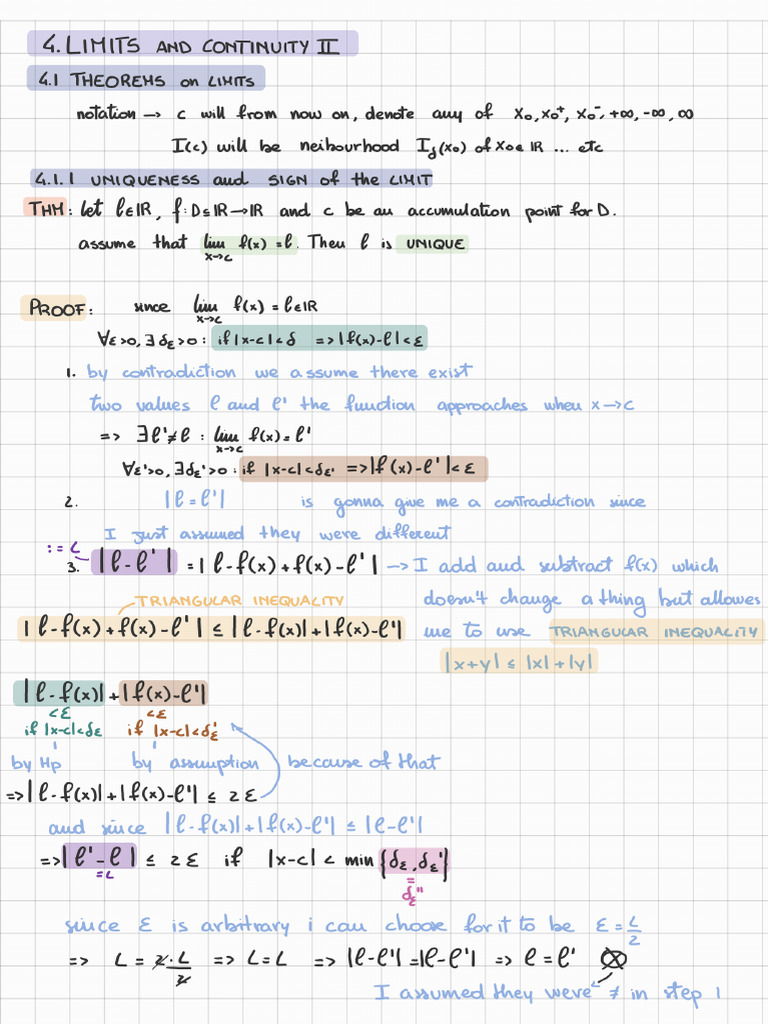 4. LIMITS AND CONTINUITY II
4.1 THEOREMS on LIMITS
notation → c will from now on, denote any of x₀, x₀⁺, x₀⁻, +∞, -∞, ∞
I(c) will be neibourhood I_δ(x₀) of x₀∈ℝ ... etc
4.1.1 UNIQUENESS and SIGN of the LIMIT
THM: let ℓ∈ℝ, f: D⊆ℝ→ℝ and c be an accumulation point for D.
assume that lim f(x) = ℓ. Then ℓ is UNIQUE
x→c
PROOF: since lim f(x) = ℓ∈ℝ
x→c
∀ε>0, ∃ δ_ε>0 : if |x-c|<δ => |f(x)-ℓ|<ε
1. by contradiction we assume there exist
two values ℓ and ℓ' the function approaches when x→c
=> ∃ℓ'≠ℓ : lim f(x) = ℓ'
x→c
∀ε'>0, ∃δ_ε'>0 : if |x-c|<δ_ε' => |f(x)-ℓ'|<ε
2. |ℓ=ℓ'| is gonna give me a contradiction since
I just assumed they were different
:= L
3. |ℓ-ℓ'| = |ℓ-f(x)+f(x)-ℓ'| → I add and subtract f(x) which
doesn't change a thing but allowes
me to use TRIANGULAR INEQUALITY
|x+y| ≤ |x|+|y|
TRIANGULAR INEQUALITY
|ℓ-f(x)+f(x)-ℓ'| ≤ |ℓ-f(x)|+|f(x)-ℓ'|
|ℓ-f(x)|+|f(x)-ℓ'|
<ε <ε
if |x-c|<δ_ε if |x-c|<δ_ε'
by Hp by assumption because of that
=> |ℓ-f(x)|+|f(x)-ℓ'| ≤ 2ε
and since |ℓ-f(x)|+|f(x)-ℓ'| ≤ |ℓ-ℓ'|
=> |ℓ'-ℓ| ≤ 2ε if |x-c| < min {δ_ε, δ_ε'}
=L =
δ_ε"
since ε is arbitrary i can choose for it to be ε = L/2
=> L = 2·L/2 => L=L => |ℓ-ℓ'|=|ℓ-ℓ'| => ℓ=ℓ' ⊗
I assumed they were ≠ in step 1